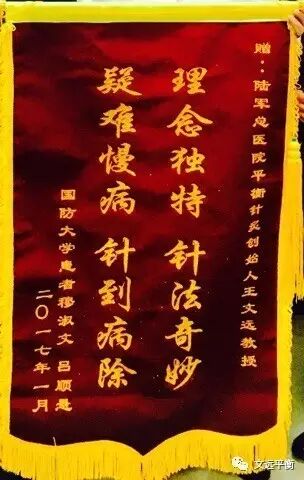 赠：陆军总医院平衡针灸创始人王文远教授
理念独特 针法奇妙
疑难慢病 针到病除
国防大学患者穆淑文 吕顺是
二〇一七年一月
文远平衡